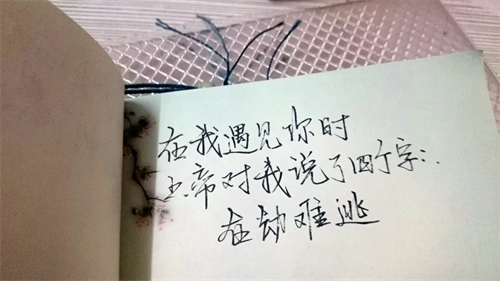 在我遇见你时
上帝对我说了四个字:
在劫难逃